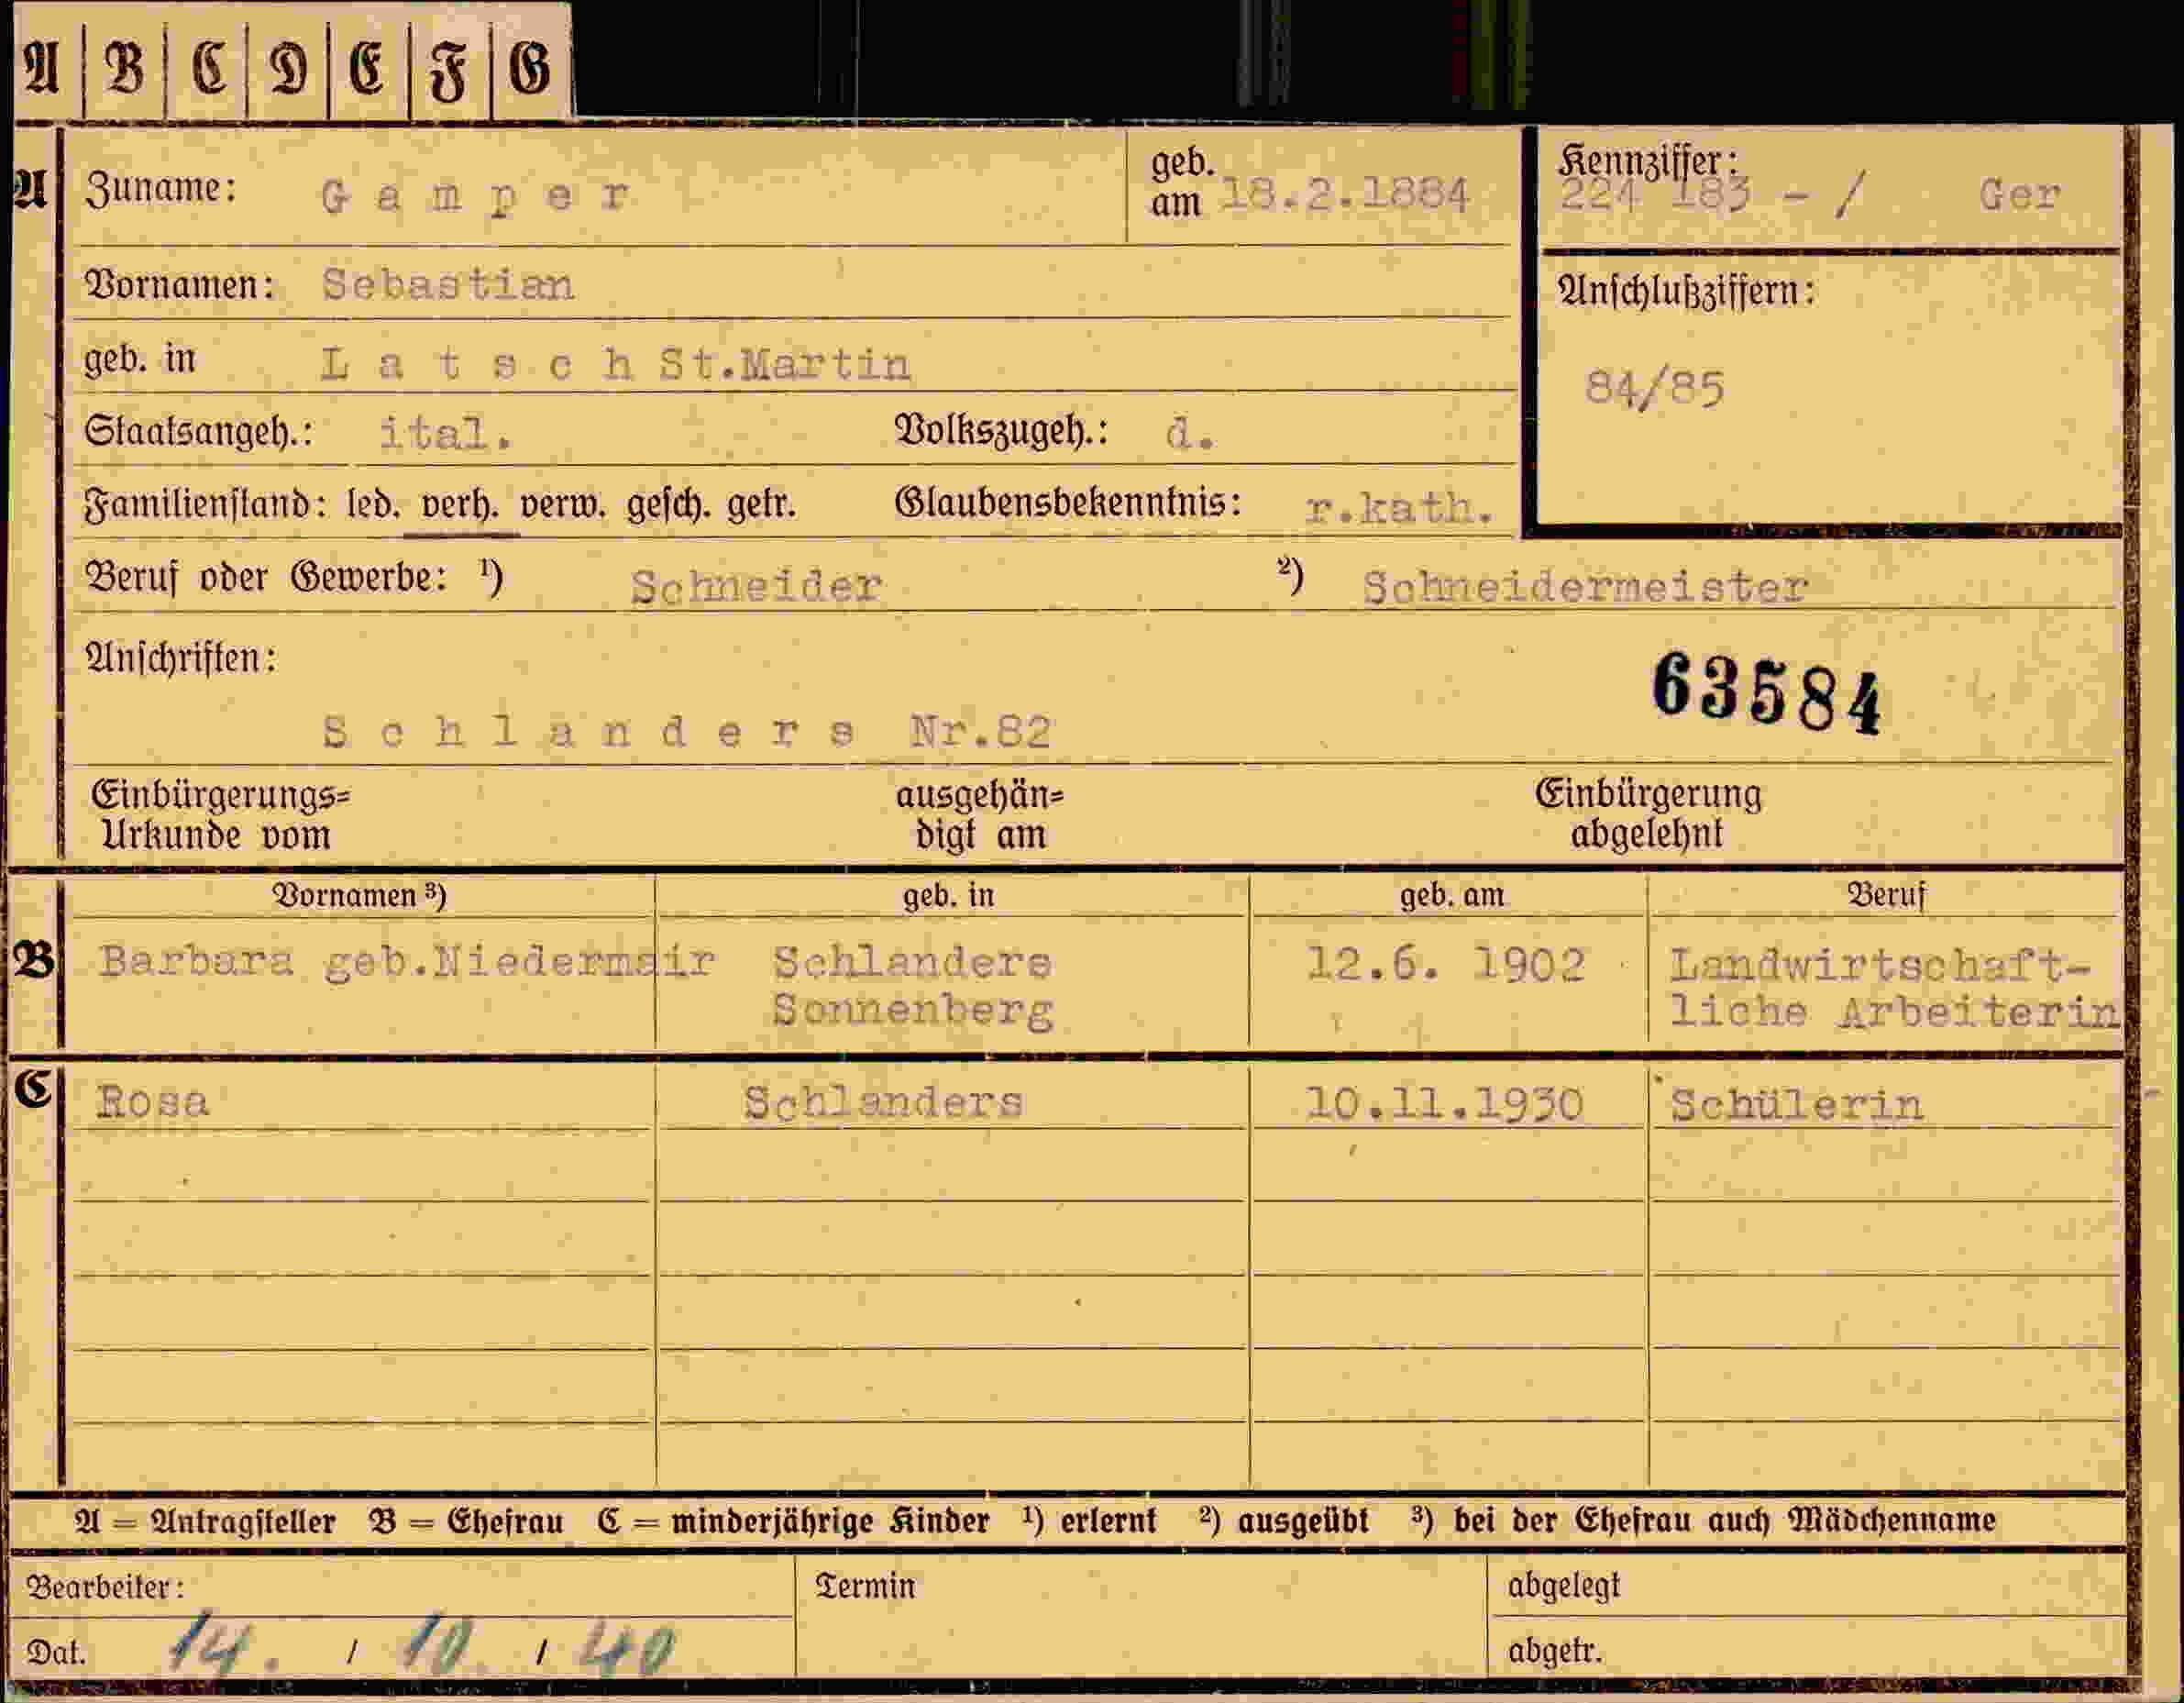 A B C D E F G
A Zuname: Gamper geb. am 18.2.1884 Kennziffer: 224 183 - / Ger
Vornamen: Sebastian Anschlußziffern:
geb. in Latsch St.Martin 84/85
Staatsangeh.: ital. Volkszugeh.: d.
Familienstand: led. verh. verw. gesch. getr. Glaubensbekenntnis: r.kath.
Beruf oder Gewerbe: ¹) Schneider ²) Schneidermeister
Anschriften: 63584
Schlanders Nr.82
Einbürgerungs= ausgehän= Einbürgerung
Urkunde vom digt am abgelehnt
Vornamen ³) geb. in geb. am Beruf
B Barbara geb.Niedermair Schlanders 12.6. 1902 Landwirtschaft-
Sonnenberg liche Arbeiterin
C Rosa Schlanders 10.11.1930 Schülerin
A = Antragsteller B = Ehefrau C = minderjährige Kinder ¹) erlernt ²) ausgeübt ³) bei der Ehefrau auch Mädchenname
Bearbeiter: Termin abgelegt
Dat. 14. / 10 / 40 abgetr.